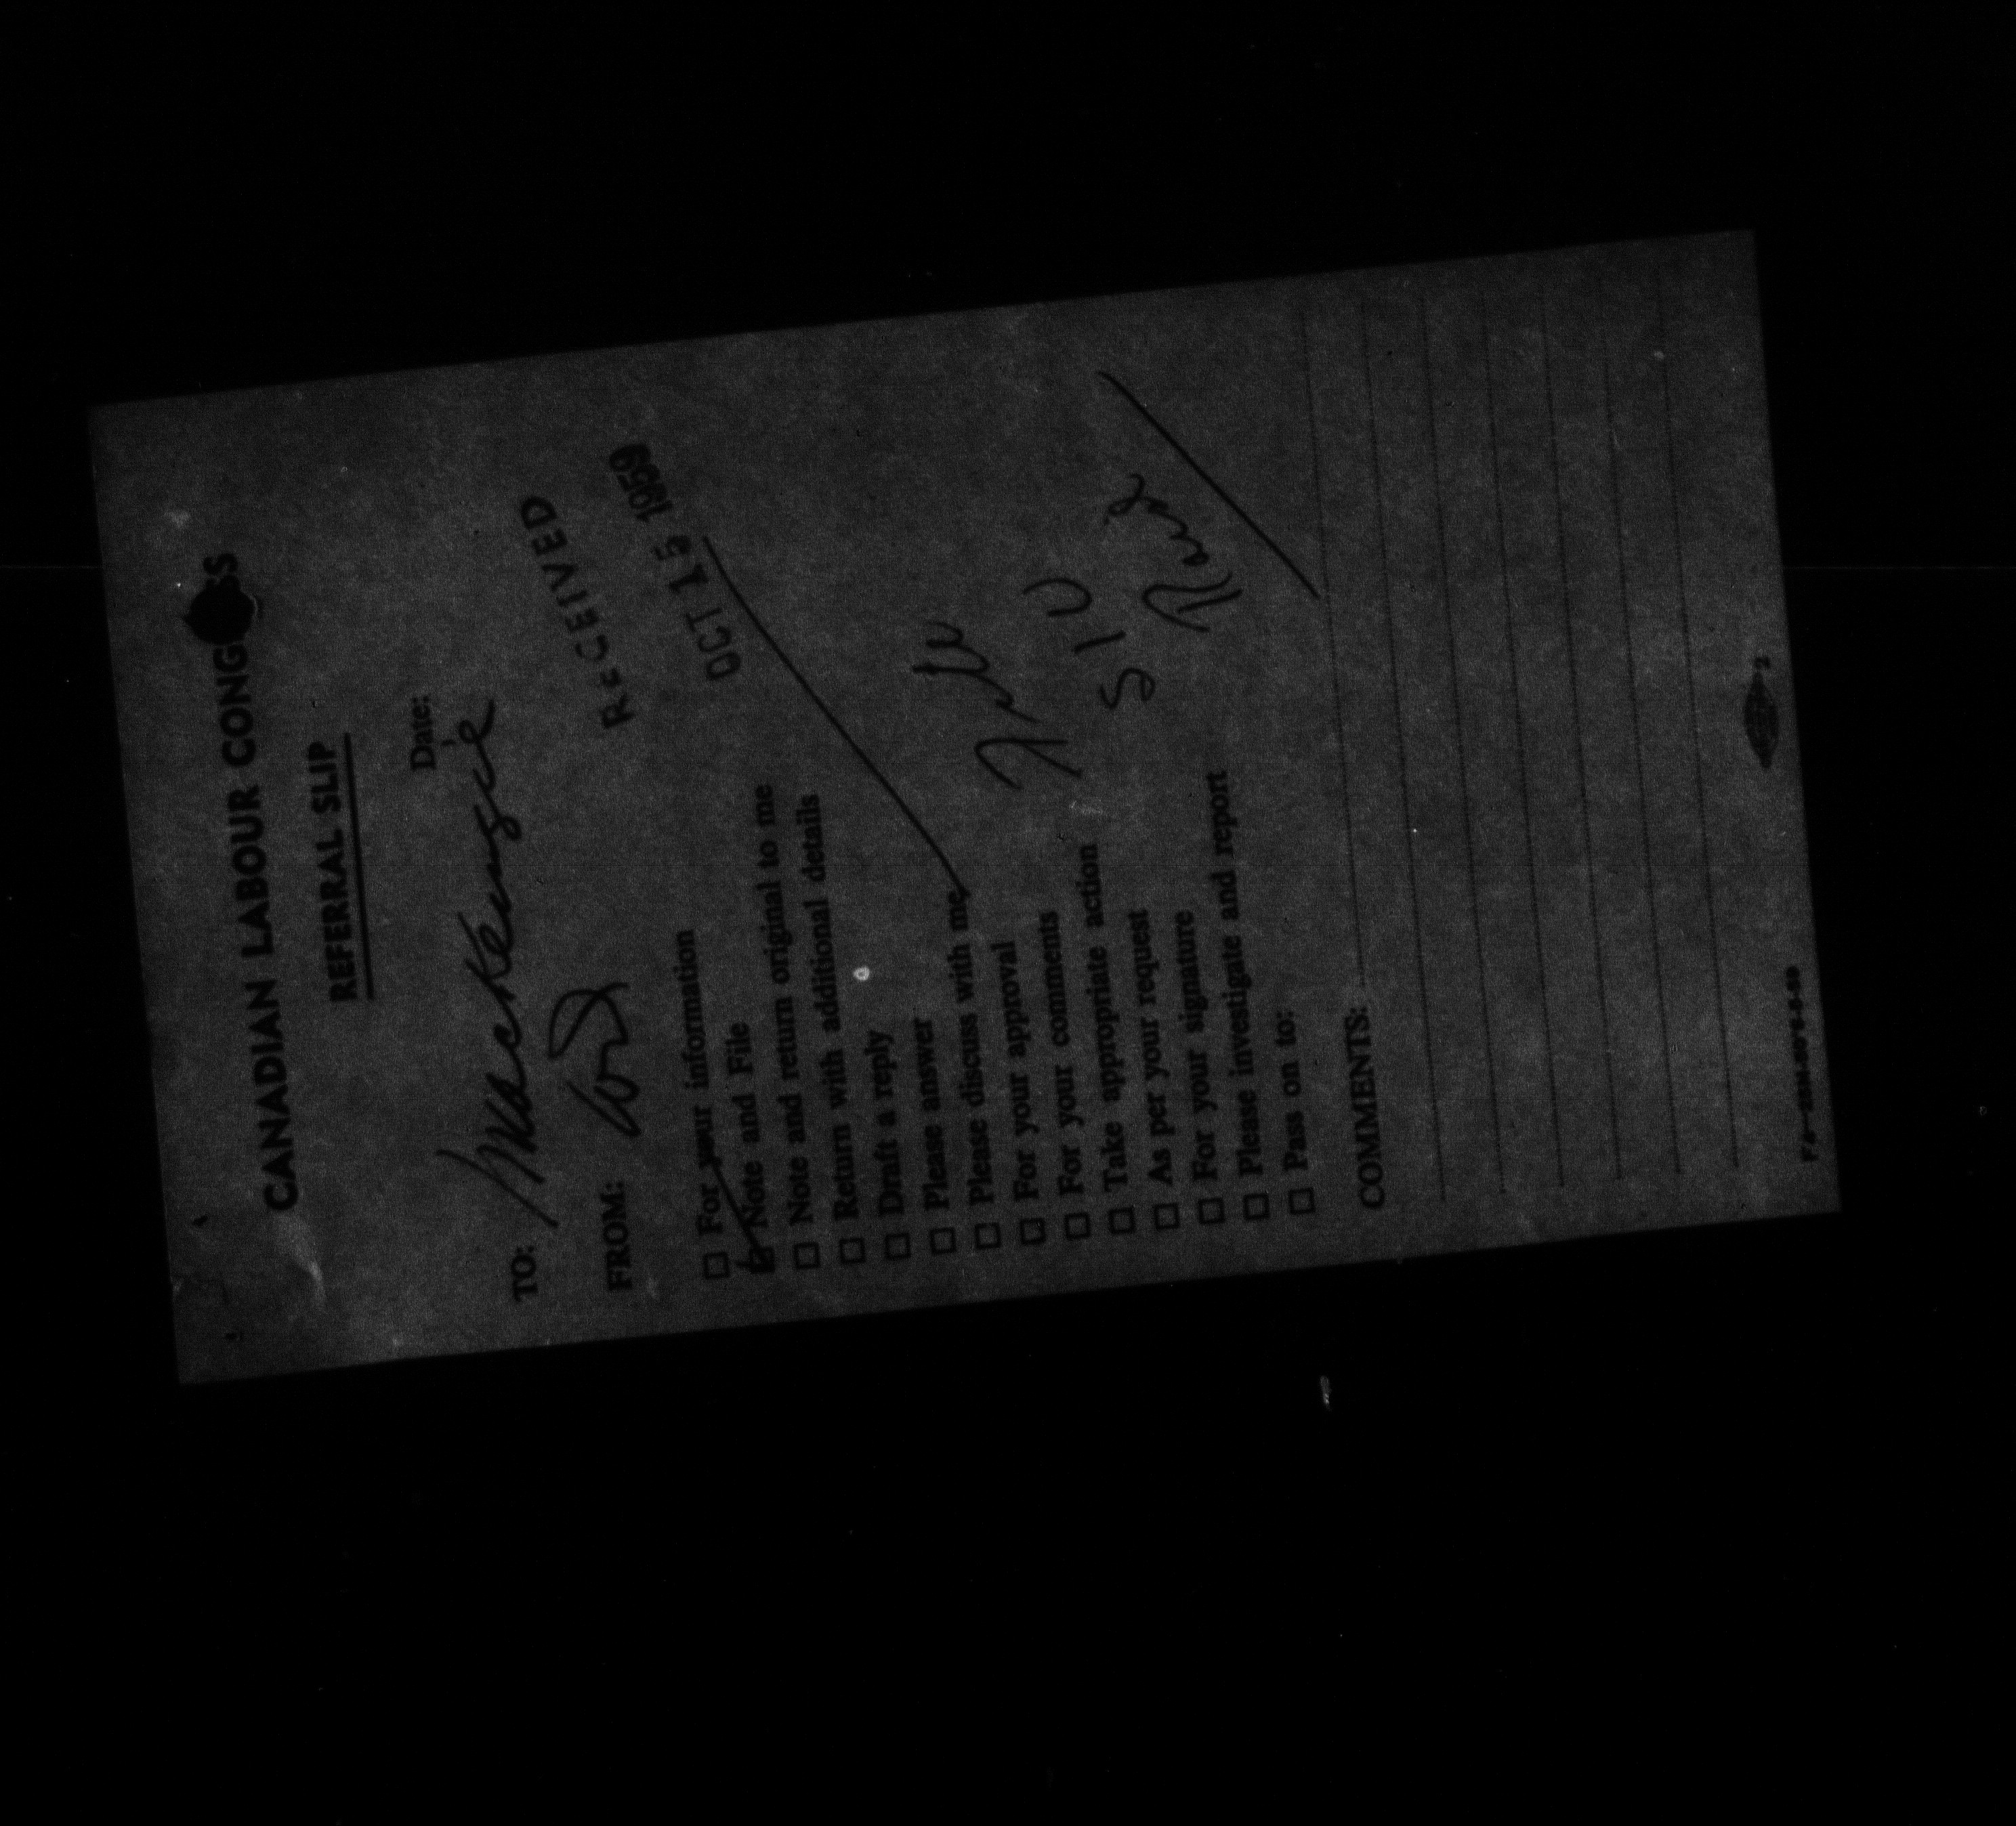 CANADIAN LABOUR CONGRESS
REFERRAL SLIP
Date:
TO: MacKenzie
FROM:
RECEIVED
OCT 15 1959
☐ For your information
☑ Note and File
☐ Note and return original to me
☐ Return with additional details
☐ Draft a reply
☐ Please answer
☐ Please discuss with me
☐ For your approval
☐ For your comments
☐ Take appropriate action
☐ As per your request
☐ For your signature
☐ Please investigate and report
☐ Pass on to:
SIU
COMMENTS:
2